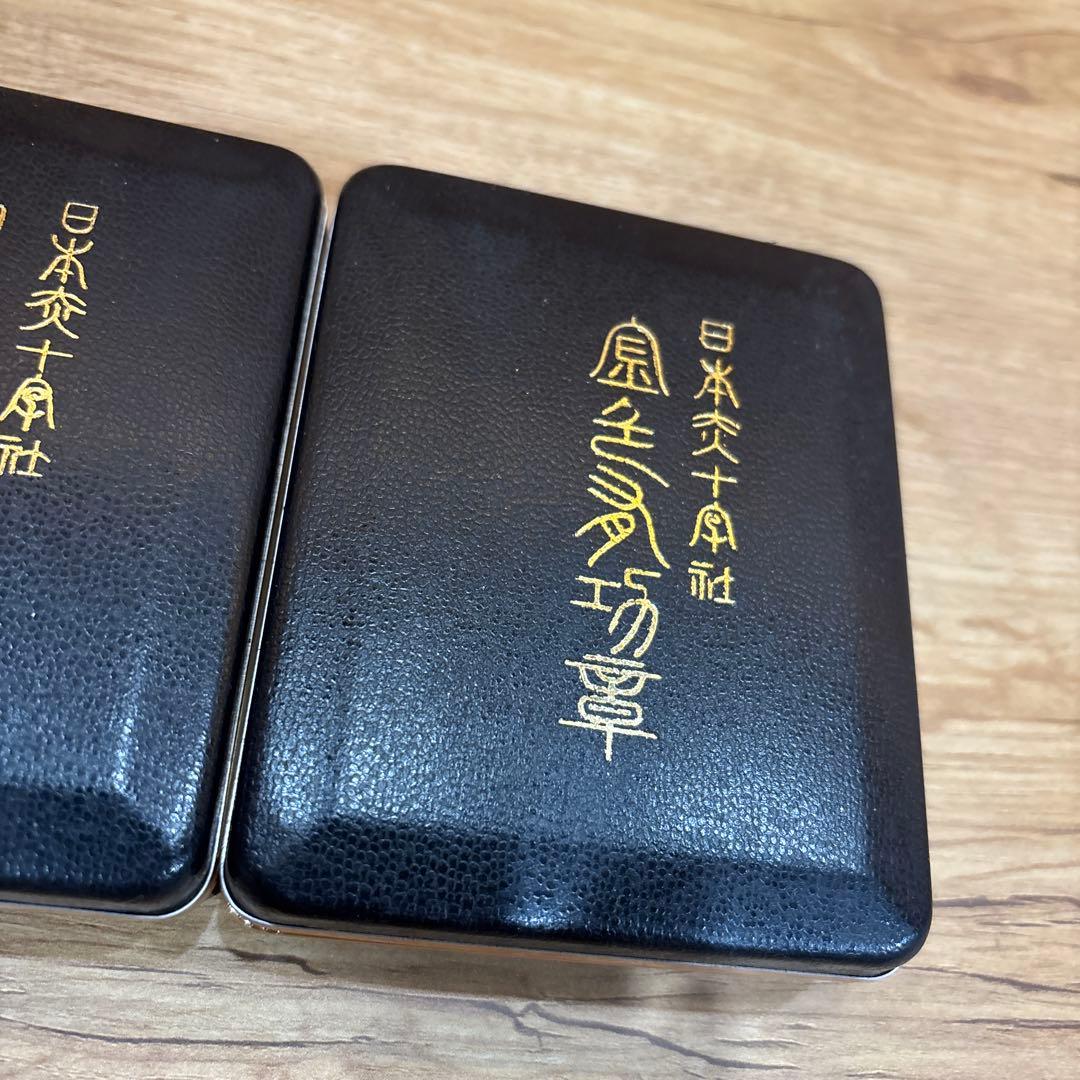 日本赤十字社
金色有功章
日本赤十字社